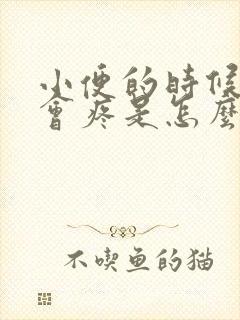 小便的時候
會疼是怎麼
不喫魚的猫